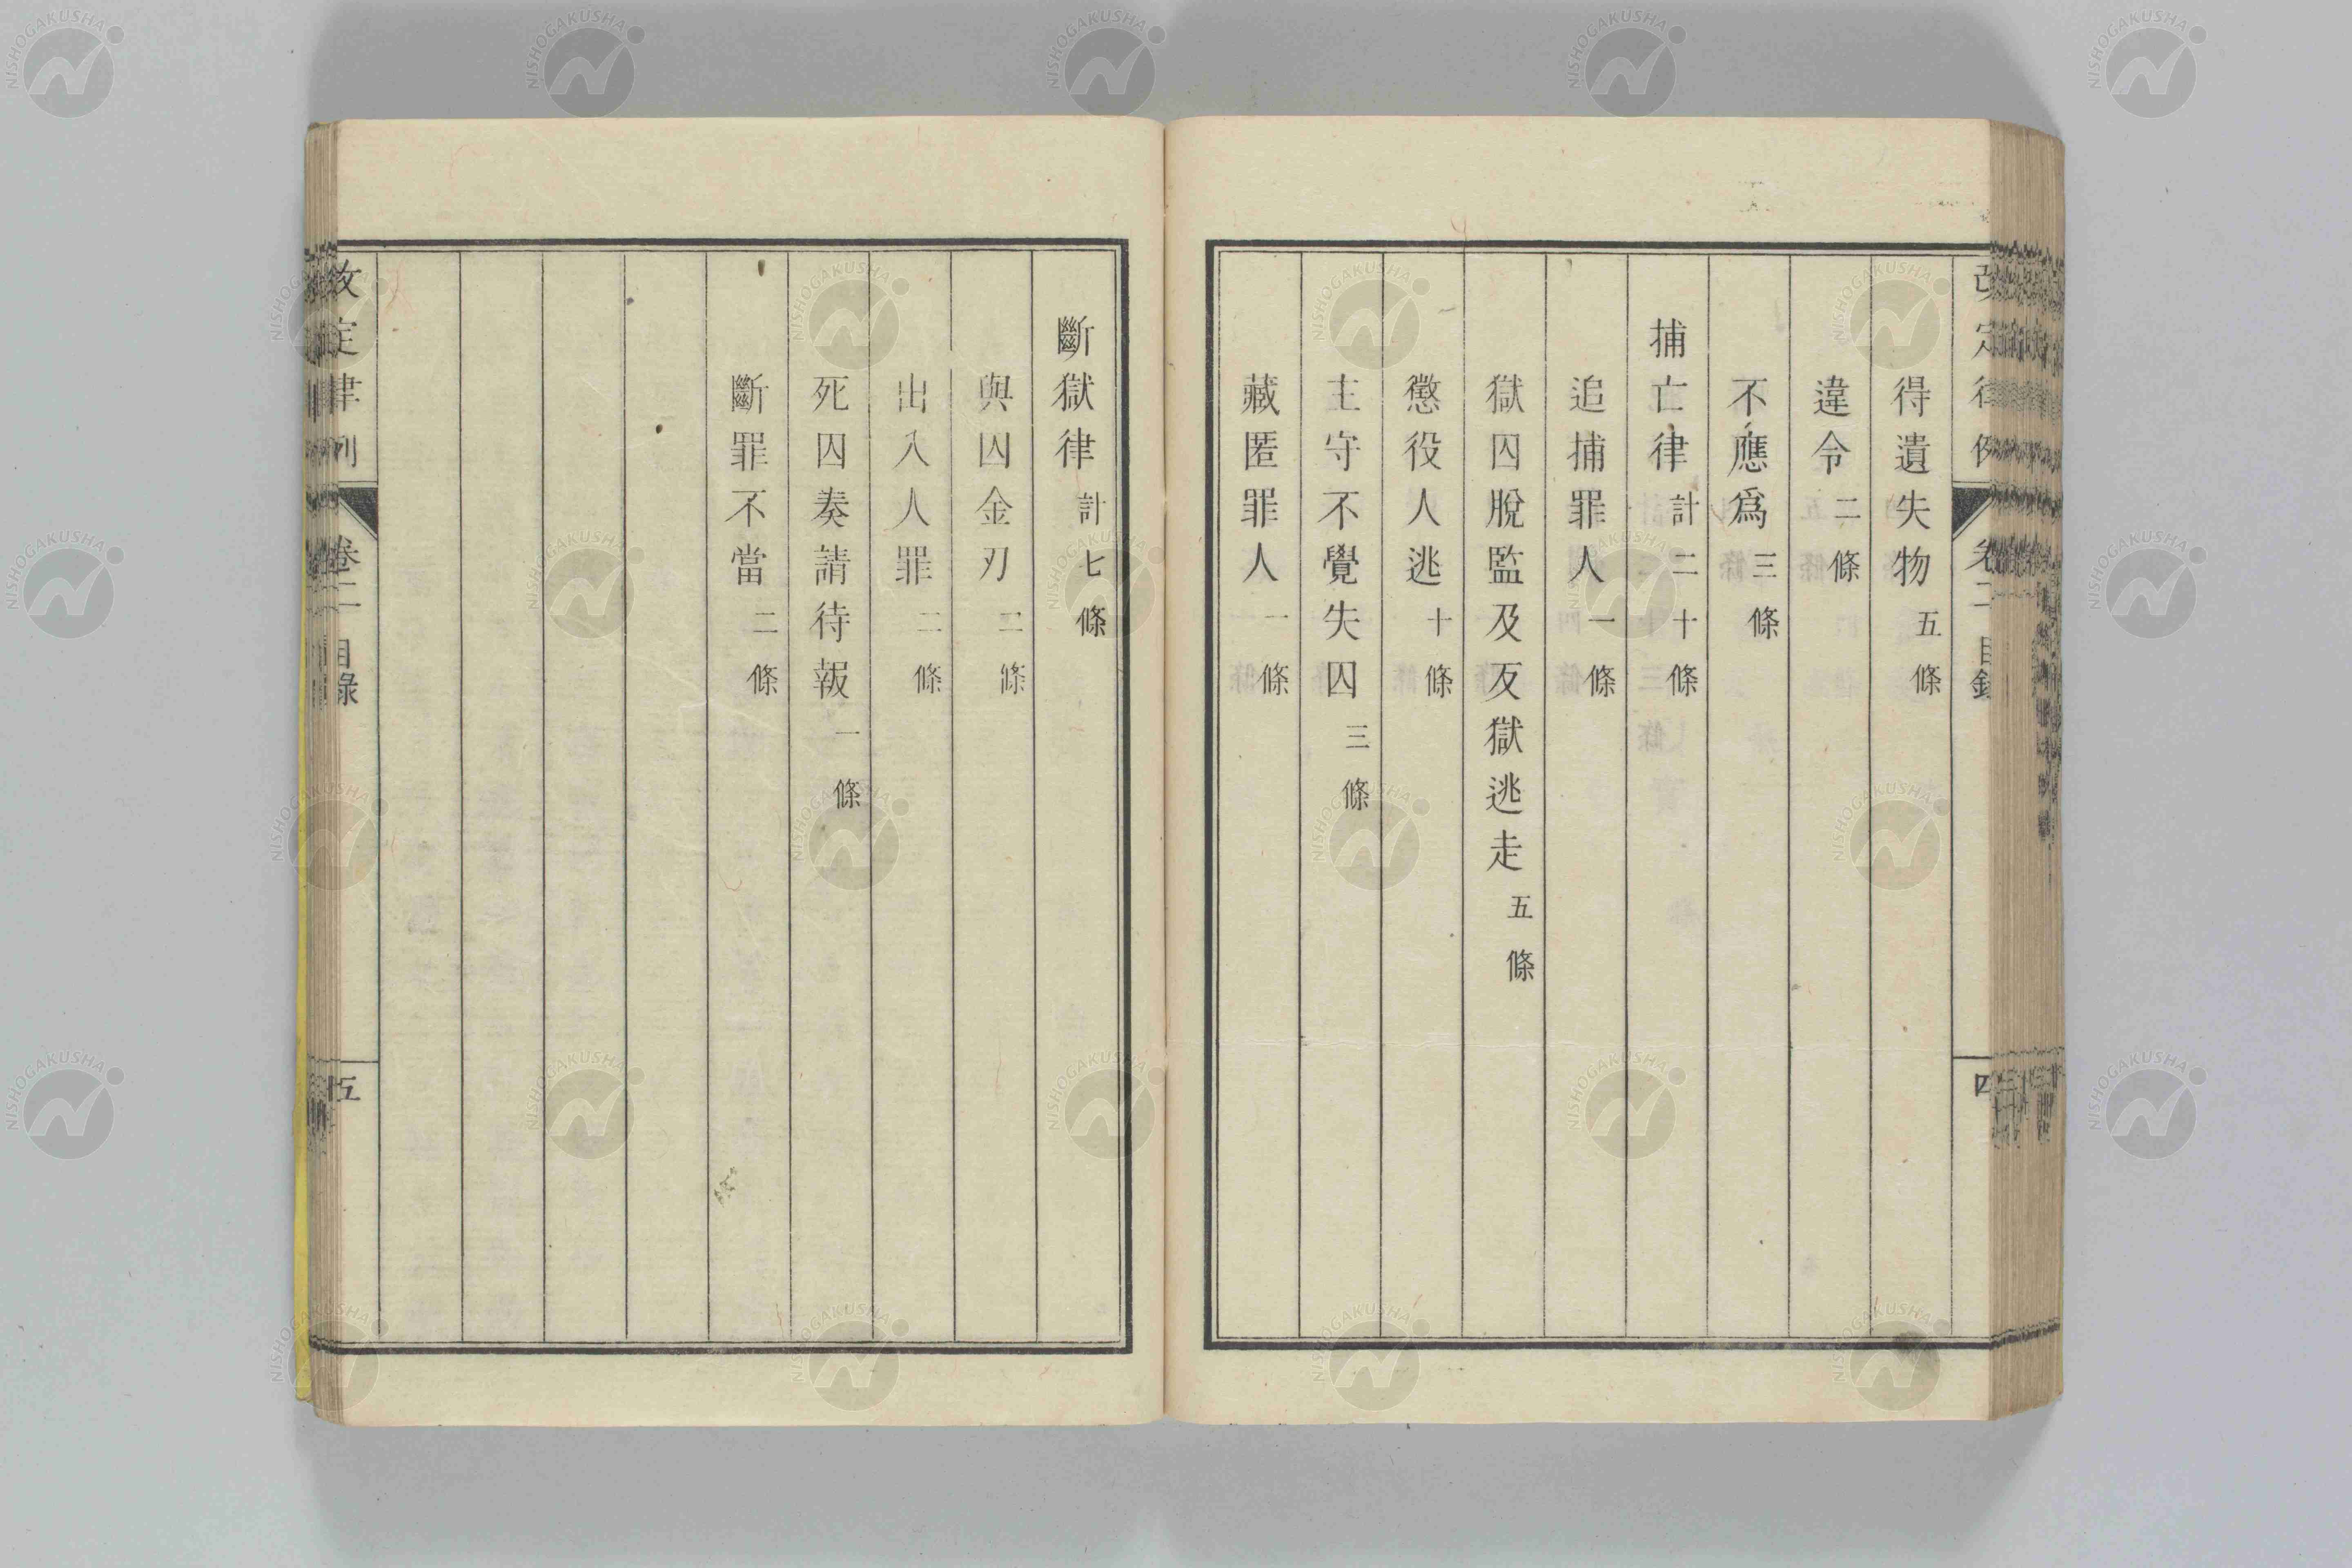 改定律例 卷二 目錄 四
得遺失物 五條
違令 二條
不應爲 三條
捕亡律 計二十條
追捕罪人 一條
獄囚脫監及反獄逃走 五條
懲役人逃 十條
主守不覺失囚 三條
藏匿罪人 一條
斷獄律 計七條
與囚金刃 二條
出入人罪 二條
死囚奏請待報 一條
斷罪不當 二條
改定律例 卷二 目錄 五
NISHOGAKUSHA